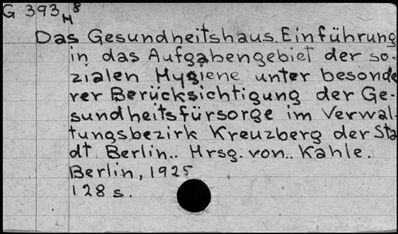 G 393 8
H
Das Gesundheitshaus. Einführung
in das Aufgabengebiet der so-
zialen Hygiene unter besonde
rer Berücksichtigung der Ge-
sundheitsfürsorge im Verwal-
tungsbezirk Kreuzberg der Sta
dt Berlin.. Hrsg. von.. Kahle.
Berlin, 1925
128 s.